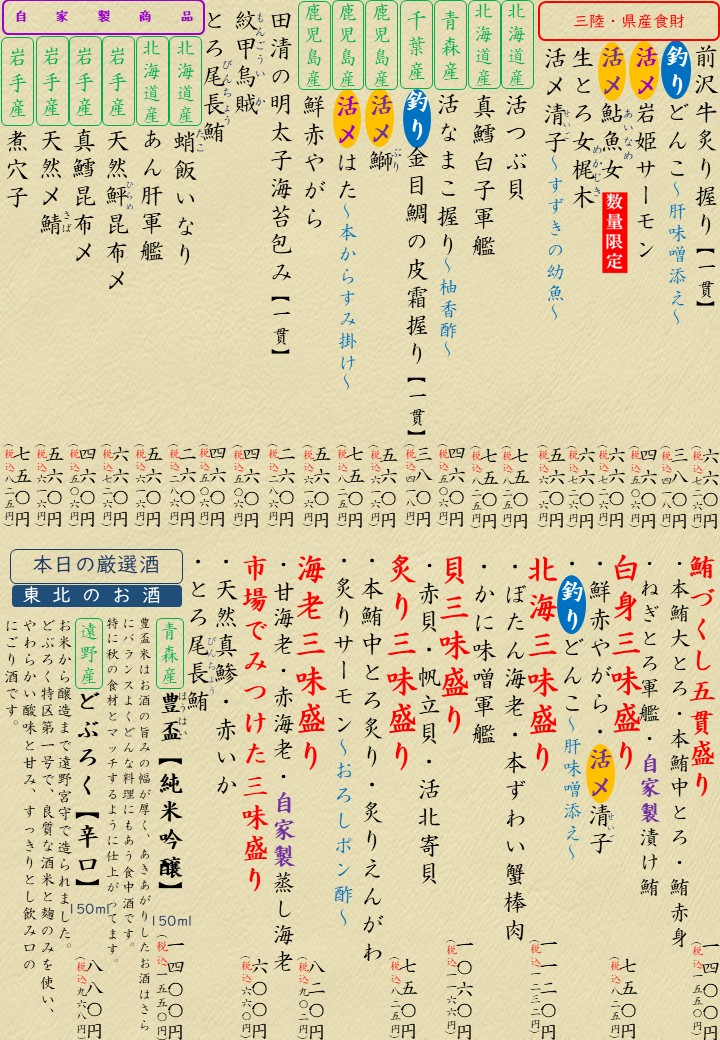 三陸・県産食財
前沢牛炙り握り【一貫】 六六〇円(税込七二六円)
釣りどんこ～肝味噌添え～ 三八〇円(税込四一八円)
活〆岩姫サーモン 四六〇円(税込五〇六円)
活〆鮎魚女 数量限定 六六〇円(税込七二六円)
あいなめ
生とろ女梶木 六六〇円(税込七二六円)
めかじき
活〆清子～すずきの幼魚～ 五六〇円(税込六一六円)
せいご
北海道産 活つぶ貝 七五〇円(税込八二五円)
北海道産 真鱈白子軍艦 七五〇円(税込八二五円)
青森産 活なまこ握り～柚香酢～ 四六〇円(税込五〇六円)
千葉産 釣り金目鯛の皮霜握り【一貫】 三八〇円(税込四一八円)
鹿児島産 活〆鰤 五六〇円(税込六一六円)
ぶり
鹿児島産 活〆はた～本からすみ掛け～ 七五〇円(税込八二五円)
鹿児島産 鮮赤やがら 五六〇円(税込六一六円)
田清の明太子海苔包み【一貫】 二六〇円(税込二八六円)
紋甲烏賊 四六〇円(税込五〇六円)
もんごういか
とろ尾長鮪 四六〇円(税込五〇六円)
びんちょう
自家製商品
北海道産 蛸飯いなり 二六〇円(税込二八六円)
たこ
北海道産 あん肝軍艦 五六〇円(税込六一六円)
岩手産 天然鮃昆布〆 六六〇円(税込七二六円)
ひらめ
岩手産 真鱈昆布〆 四六〇円(税込五〇六円)
岩手産 天然〆鯖 五六〇円(税込六一六円)
さば
岩手産 煮穴子 七五〇円(税込八二五円)
鮪づくし五貫盛り 一四〇〇円(税込一五四〇円)
・本鮪大とろ・本鮪中とろ・鮪赤身
・ねぎとろ軍艦・自家製漬け鮪
白身三味盛り 七五〇円(税込八二五円)
・鮮赤やがら・活〆清子
せいご
・釣りどんこ～肝味噌添え～
北海三味盛り 一一二〇円(税込一二三二円)
・ぼたん海老・本ずわい蟹棒肉
・かに味噌軍艦
貝三味盛り 一〇六〇円(税込一一六六円)
・赤貝・帆立貝・活北寄貝
炙り三味盛り 七五〇円(税込八二五円)
・本鮪中とろ炙り・炙りえんがわ
・炙りサーモン～おろしポン酢～
海老三味盛り 八二〇円(税込九〇二円)
・甘海老・赤海老・自家製蒸し海老
市場でみつけた三味盛り 六〇〇円(税込六六〇円)
・天然真鯵・赤いか
・とろ尾長鮪
びんちょう
本日の厳選酒
東北のお酒
青森産 豊盃【純米吟醸】 150ml 一四〇〇円(税込一五四〇円)
ほうはい
豊盃米はお酒の旨みの幅が厚く、あきあがりしたお酒はさら
にバランスよくどんな料理にもあう食中酒です。
特に秋の食材とマッチするように仕上がってます。
遠野産 どぶろく【辛口】 150ml 八八〇円(税込九六八円)
お米から醸造まで遠野宮守で造られました。
どぶろく特区第一号で、良質な酒米と麹のみを使い、
やわらかい酸味と甘み、すっきりとし飲み口の
にごり酒です。